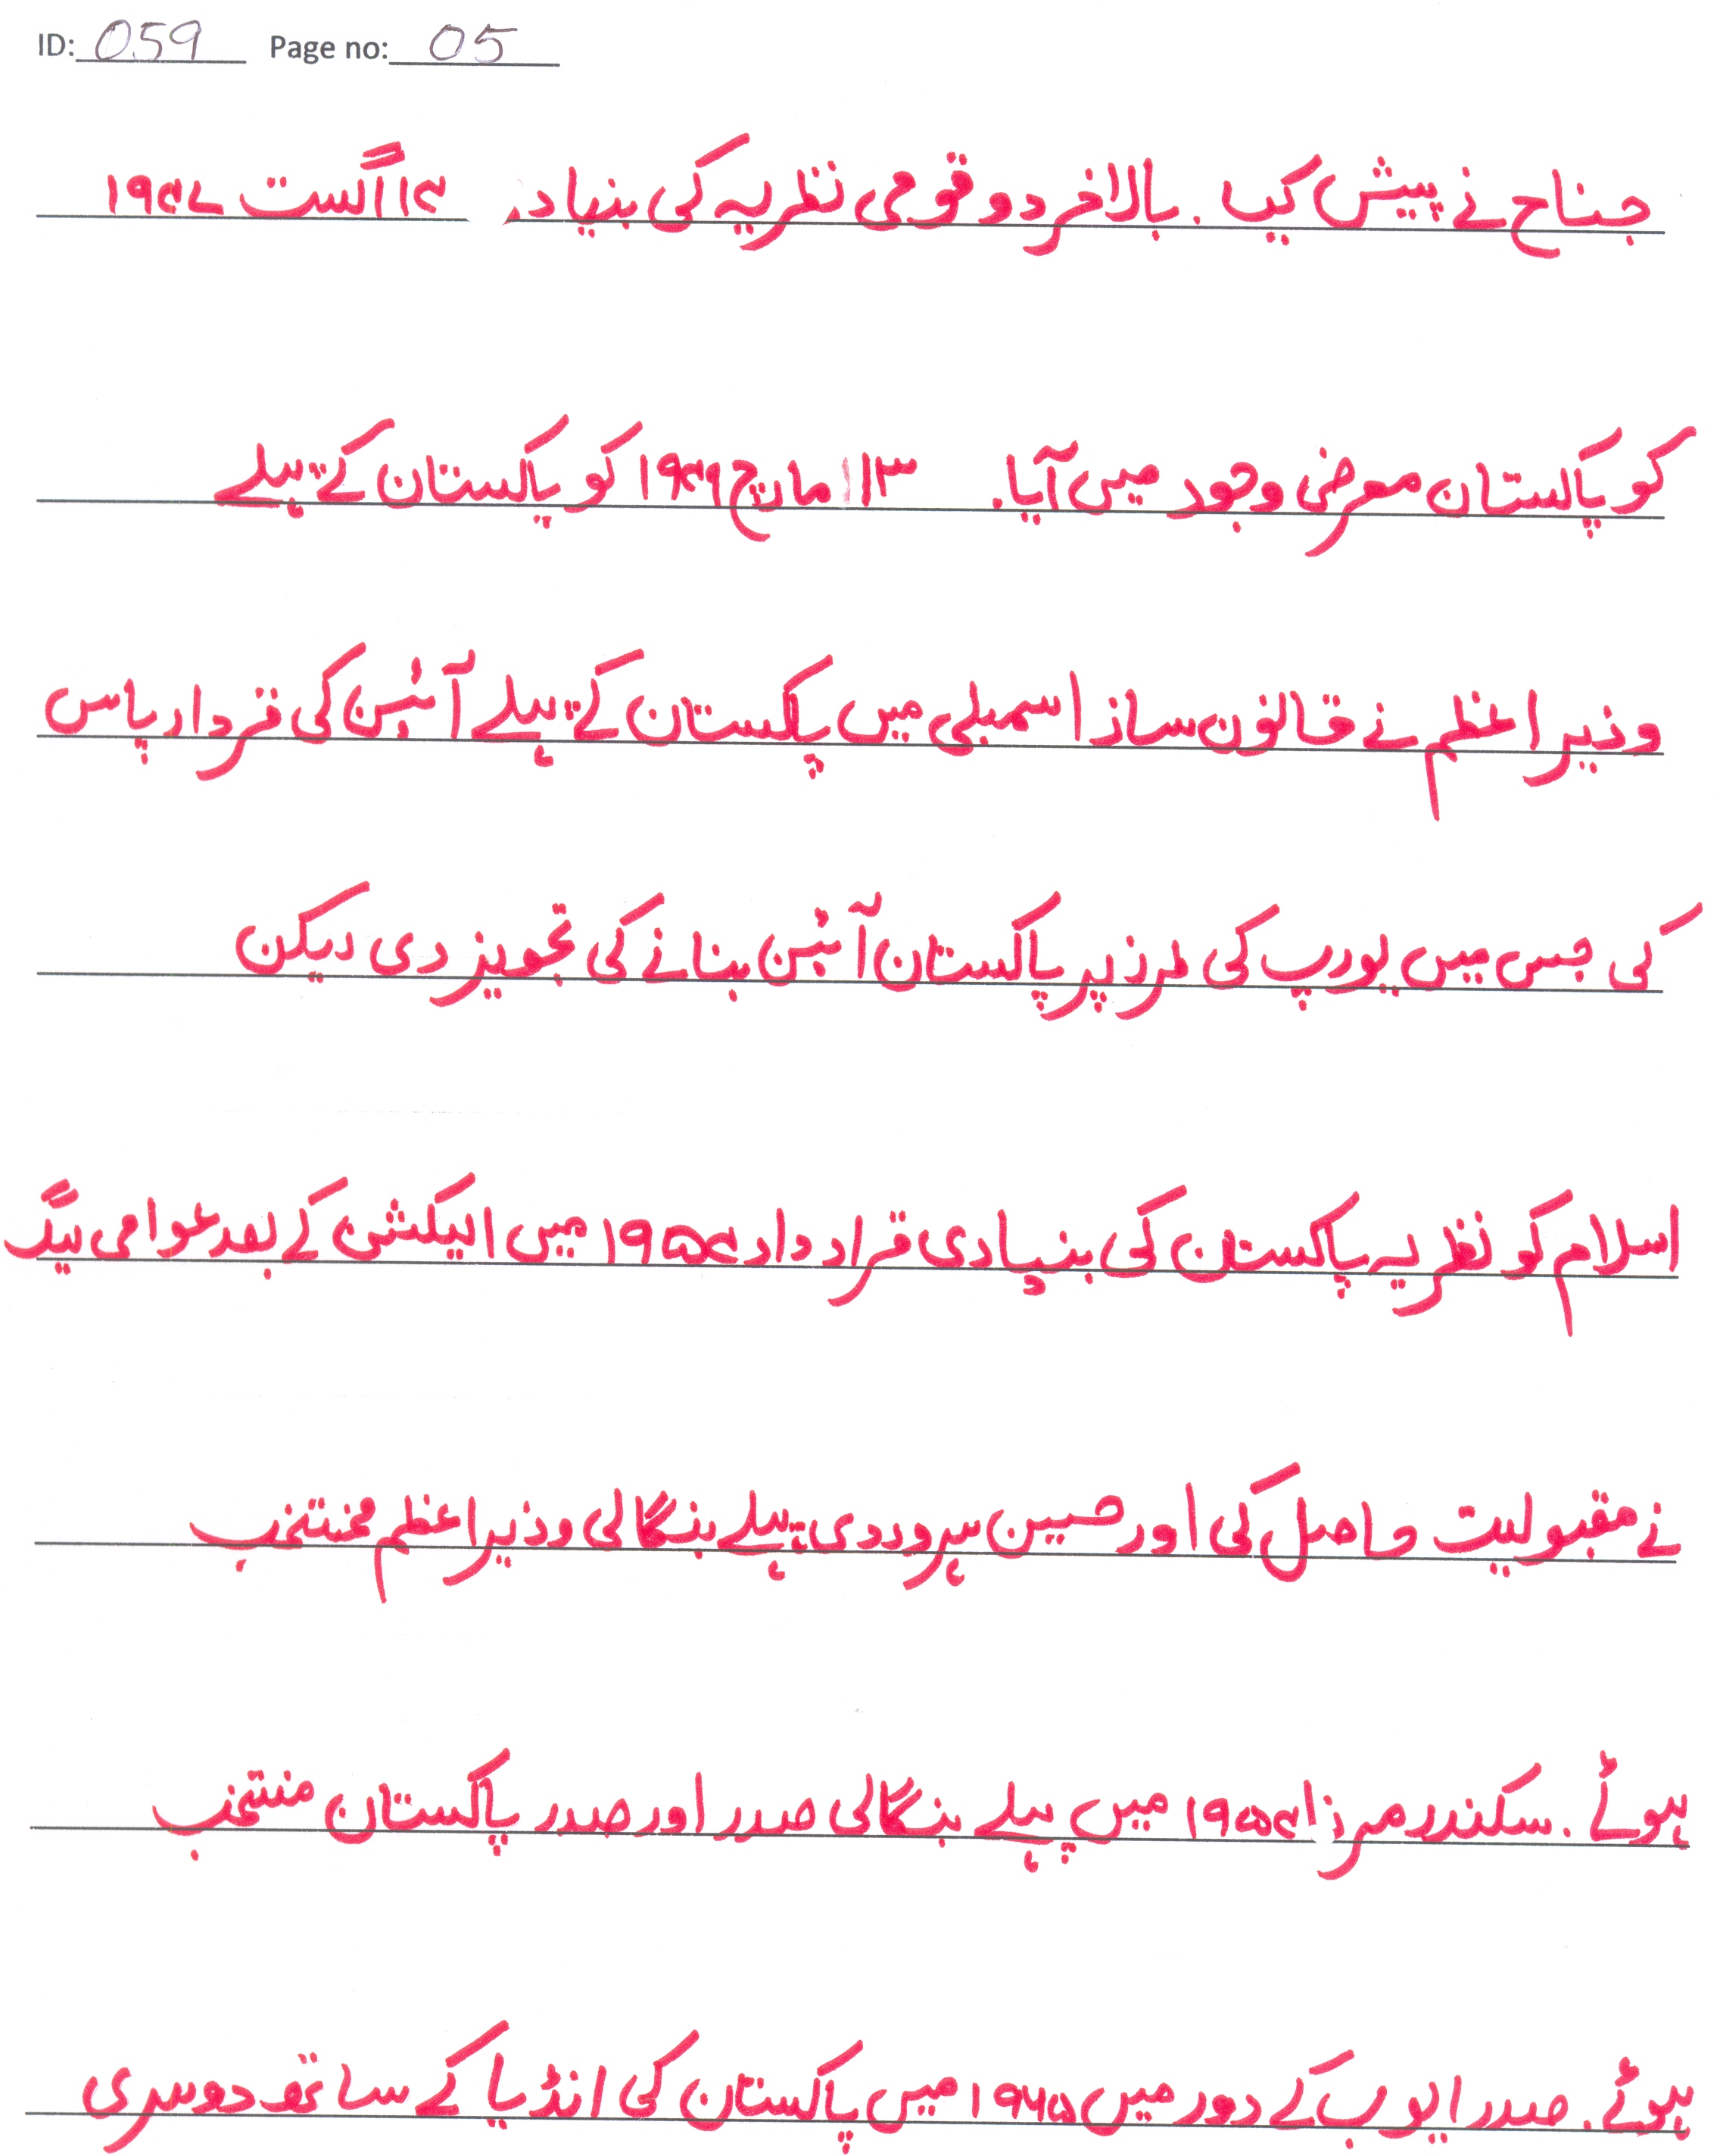 ID: 059 Page no: 05
جناح نے پیش کیا۔ بالاخر دو قومی نظریہ کی بنیاد پر ۱۴ اگست ۱۹۴۷
کو پاکستان معرض وجود میں آیا۔ ۱۳ مارچ ۱۹۴۹ کو پاکستان کے پہلے
وزیر اعظم نے قانون ساز اسمبلی میں پاکستان کے پہلے آئین کی قردار پاس
کی جس میں یورپ کی طرز پر پاکستان آئین بنانے کی تجویز دی لیکن
اسلام کو نظریہ پاکستان کی بنیادی قرار داد ۱۹۵۴ میں الیکشن کے بعد عوامی لیگ
نے مقبولیت حاصل کی اور حسین سہروردی پہلے بنگالی وزیر اعظم منتخب
ہوئے۔ سکندر مرزا ۱۹۵۴ میں پہلے بنگالی صدر اور صدر پاکستان منتخب
ہوئے۔ صدر ایوب کے دور میں ۱۹۶۵ میں پاکستان کی انڈیا کے ساتھ دوسری